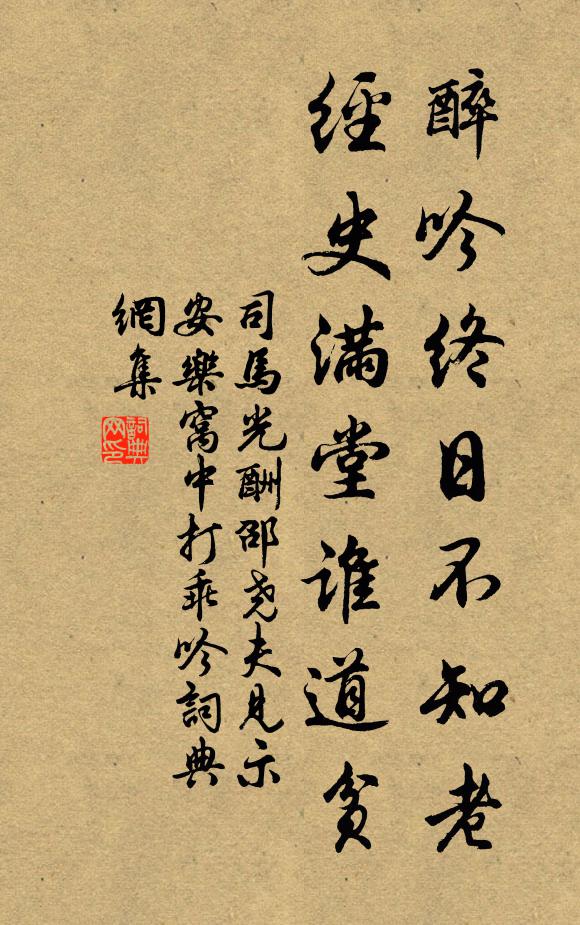 醉吟終日不知老
經史滿堂誰道貧
司馬光酬邵尧夫見示
安樂窩中打乖吟詞典
網集
詞典
网印